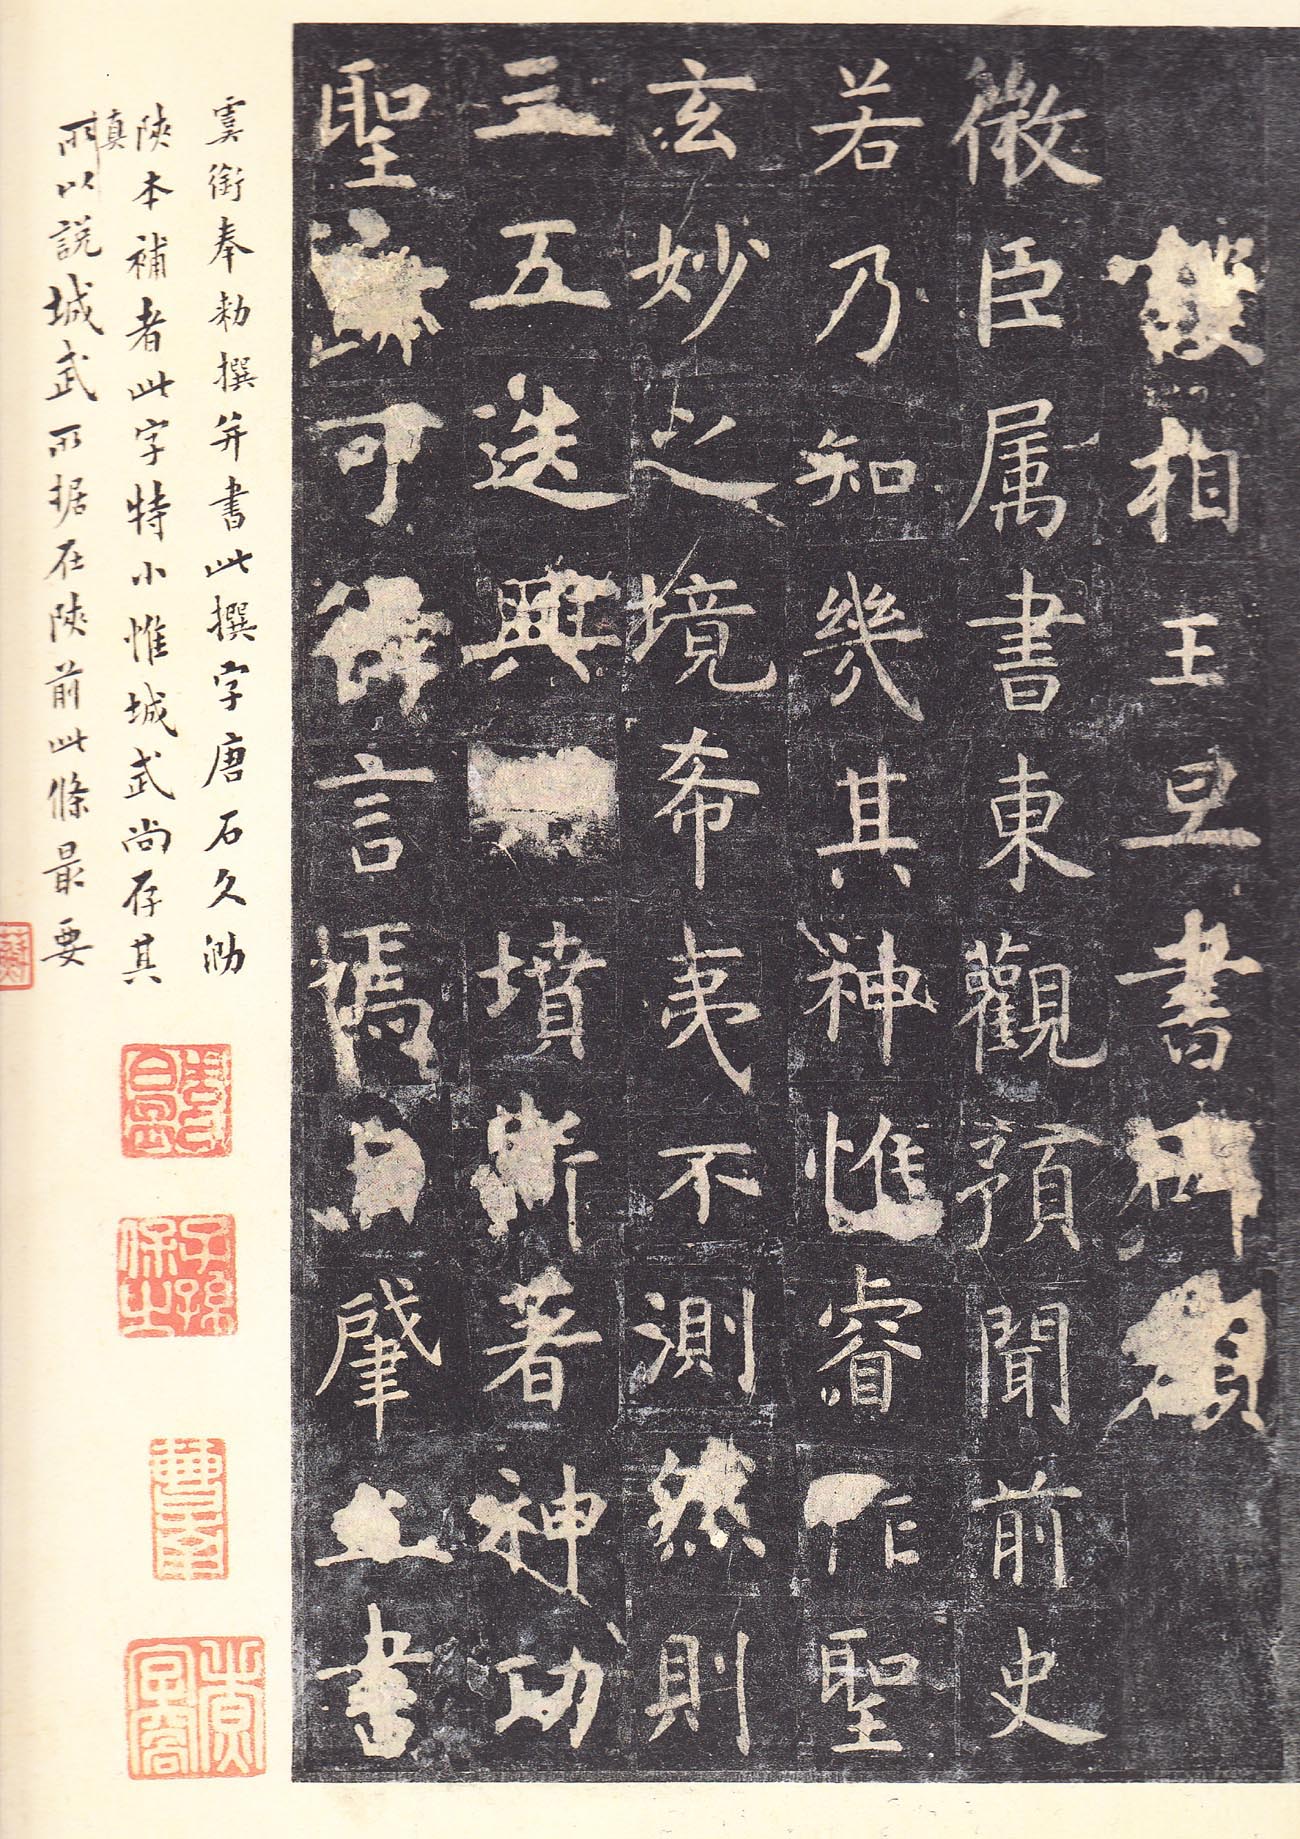 護相王旦書碑額
微臣属書東觀預聞前史
若乃知幾其神惟睿作聖
玄妙之境希夷不測然則
三五迭興墳斯著神功
聖可得言焉肇立書
虞銜奉勑撰并書此撰字唐石久泐
陝本補者此字特小惟城武尚存其真
所以説城武所据在陝前此條最要
子孫保之